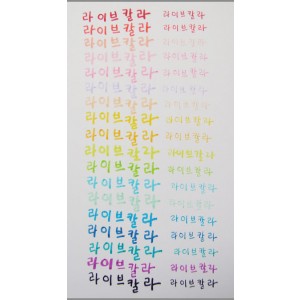 라이브칼라 라이브칼라
라이브칼라 라이브칼라
라이브칼라 라이브칼라
라이브칼라 라이브칼라
라이브칼라 라이브칼라
라이브칼라 라이브칼라
라이브칼라 라이브칼라
라이브칼라 라이브칼라
라이브칼라 라이브칼라
라이브칼라 라이브칼라
라이브칼라 라이브칼라
라이브칼라 라이브칼라
라이브칼라 라이브칼라
라이브칼라 라이브칼라
라이브칼라 라이브칼라
라이브칼라 라이브칼라
라이브칼라 라이브칼라
라이브칼라 라이브칼라